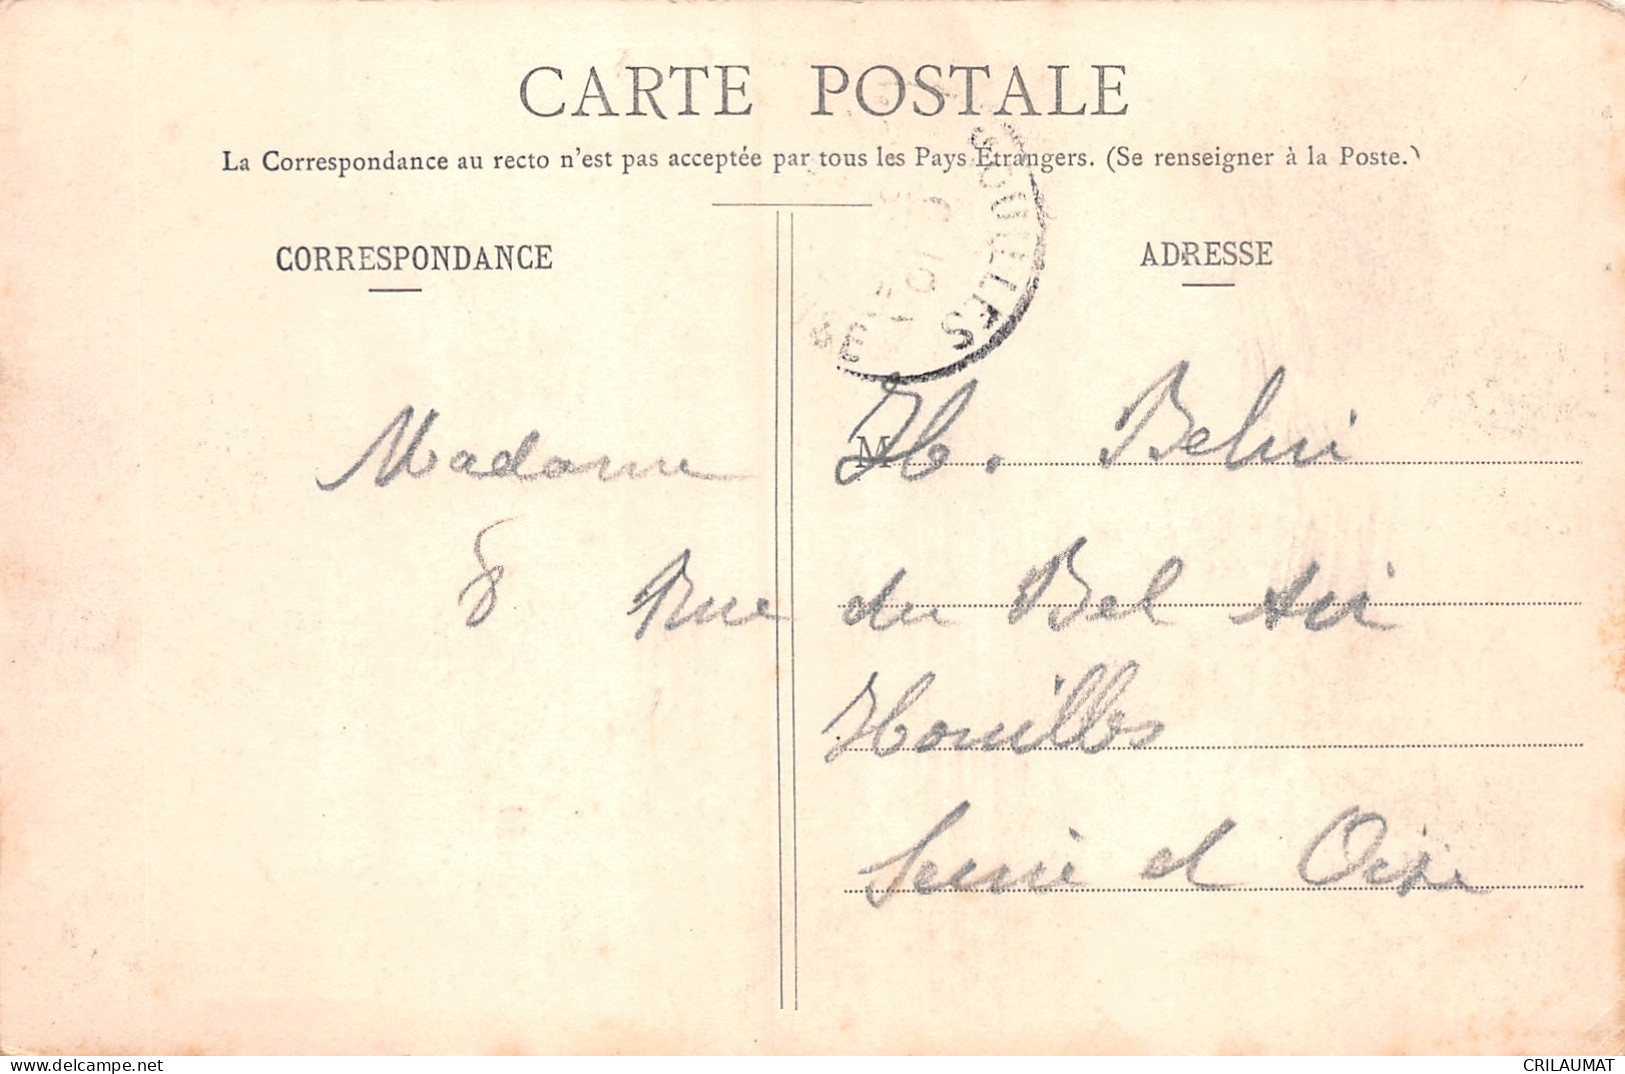 CARTE POSTALE
La Correspondance au recto n'est pas acceptée par tous les Pays Étrangers. (Se renseigner à la Poste.)
CORRESPONDANCE
ADRESSE
OUILLES
M
Madame H. Belin
8 Rue du Bel Air
Houilles
Seine et Oise
CRILAUMAT